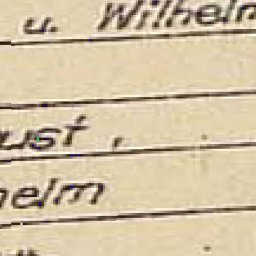 u. Wilhelm
ust,
helm